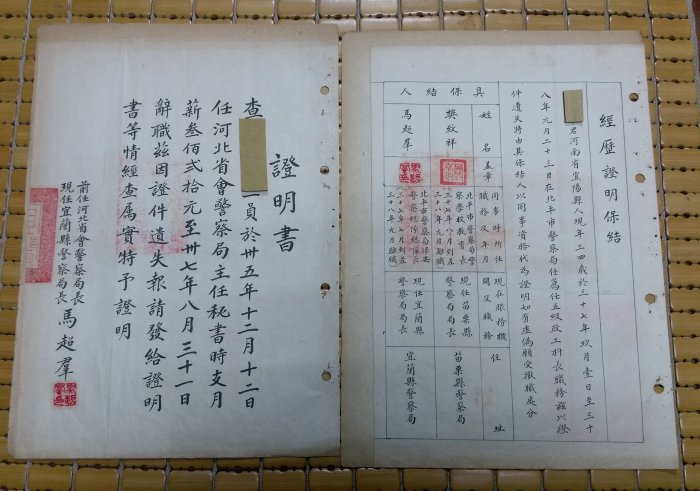 經歷證明保結
君河南省宜陽縣人現年三四歲於三十七年玖月壹日至三十
八年元月二十三日在北平市警察局任荐任五級政工科長職務茲以證
件遺失特由具保結人以同事資格代為證明如有虛偽願受撤職處分
具保結人
姓名蓋章
同事時所任
職務及年月
現在服務機
關及職務
住址
樊致祥
北平市警察局警
察學校教育長
現任苗栗縣
警察局局長
苗栗縣警察局
馬超羣
北平市警察局保安
警察總隊總隊長
三十八年元月離職
現任宜蘭縣
警察局局長
宜蘭縣警察局
證明書
查員於卅五年十二月十二日
任河北省會警察局主任秘書時支月
薪叁佰貳拾元至卅七年八月三十一日
辭職茲因證件遺失報請發給證明
書等情經查屬實特予證明
前任河北省會警察局長
現任宜蘭縣警察局長
馬超羣